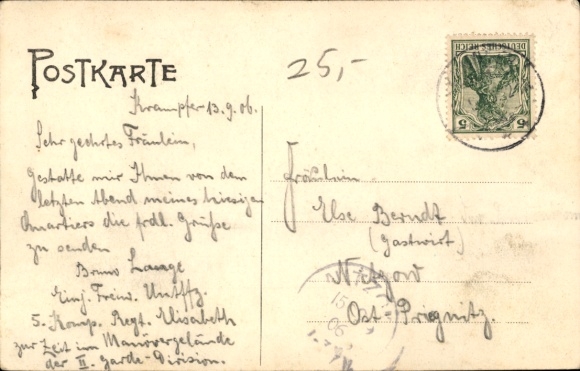 POSTKARTE
25,-
Krampfer 13.9.06.
Sehr geehrtes Fräulein,
gestatte mir Ihnen von dem
letzten Abend meines hiesigen
Quartiers die frdl. Grüße
zu senden
Bruno Lange
Einj. Freiw. Untffz.
5. Komp. Regt. Elisabeth
zur Zeit im Manövergelände
der II. Garde-Division.
DEUTSCHES REICH
5 5
Fräulein
Else Berndt
(Gastwirt)
Ost-Prignitz.
15
06